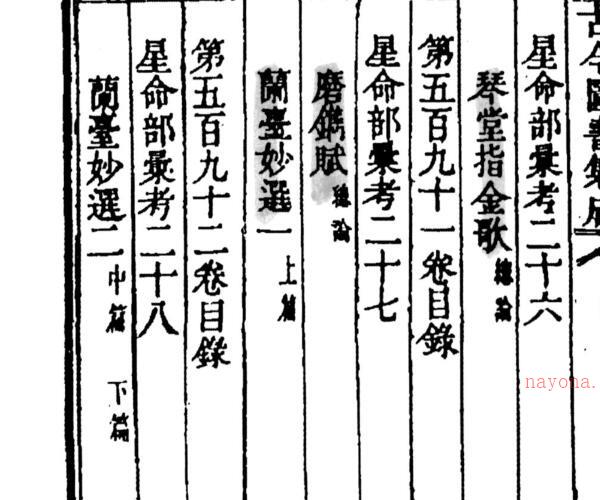 古今圖書集成
星命部彙考二十六
琴堂指金歌 總論
第五百九十一卷目錄
星命部彙考二十七
磨鐫賦 總論
蘭臺妙選一 上篇
第五百九十二卷目錄
星命部彙考二十八
蘭臺妙選二 中篇 下篇
nayona.